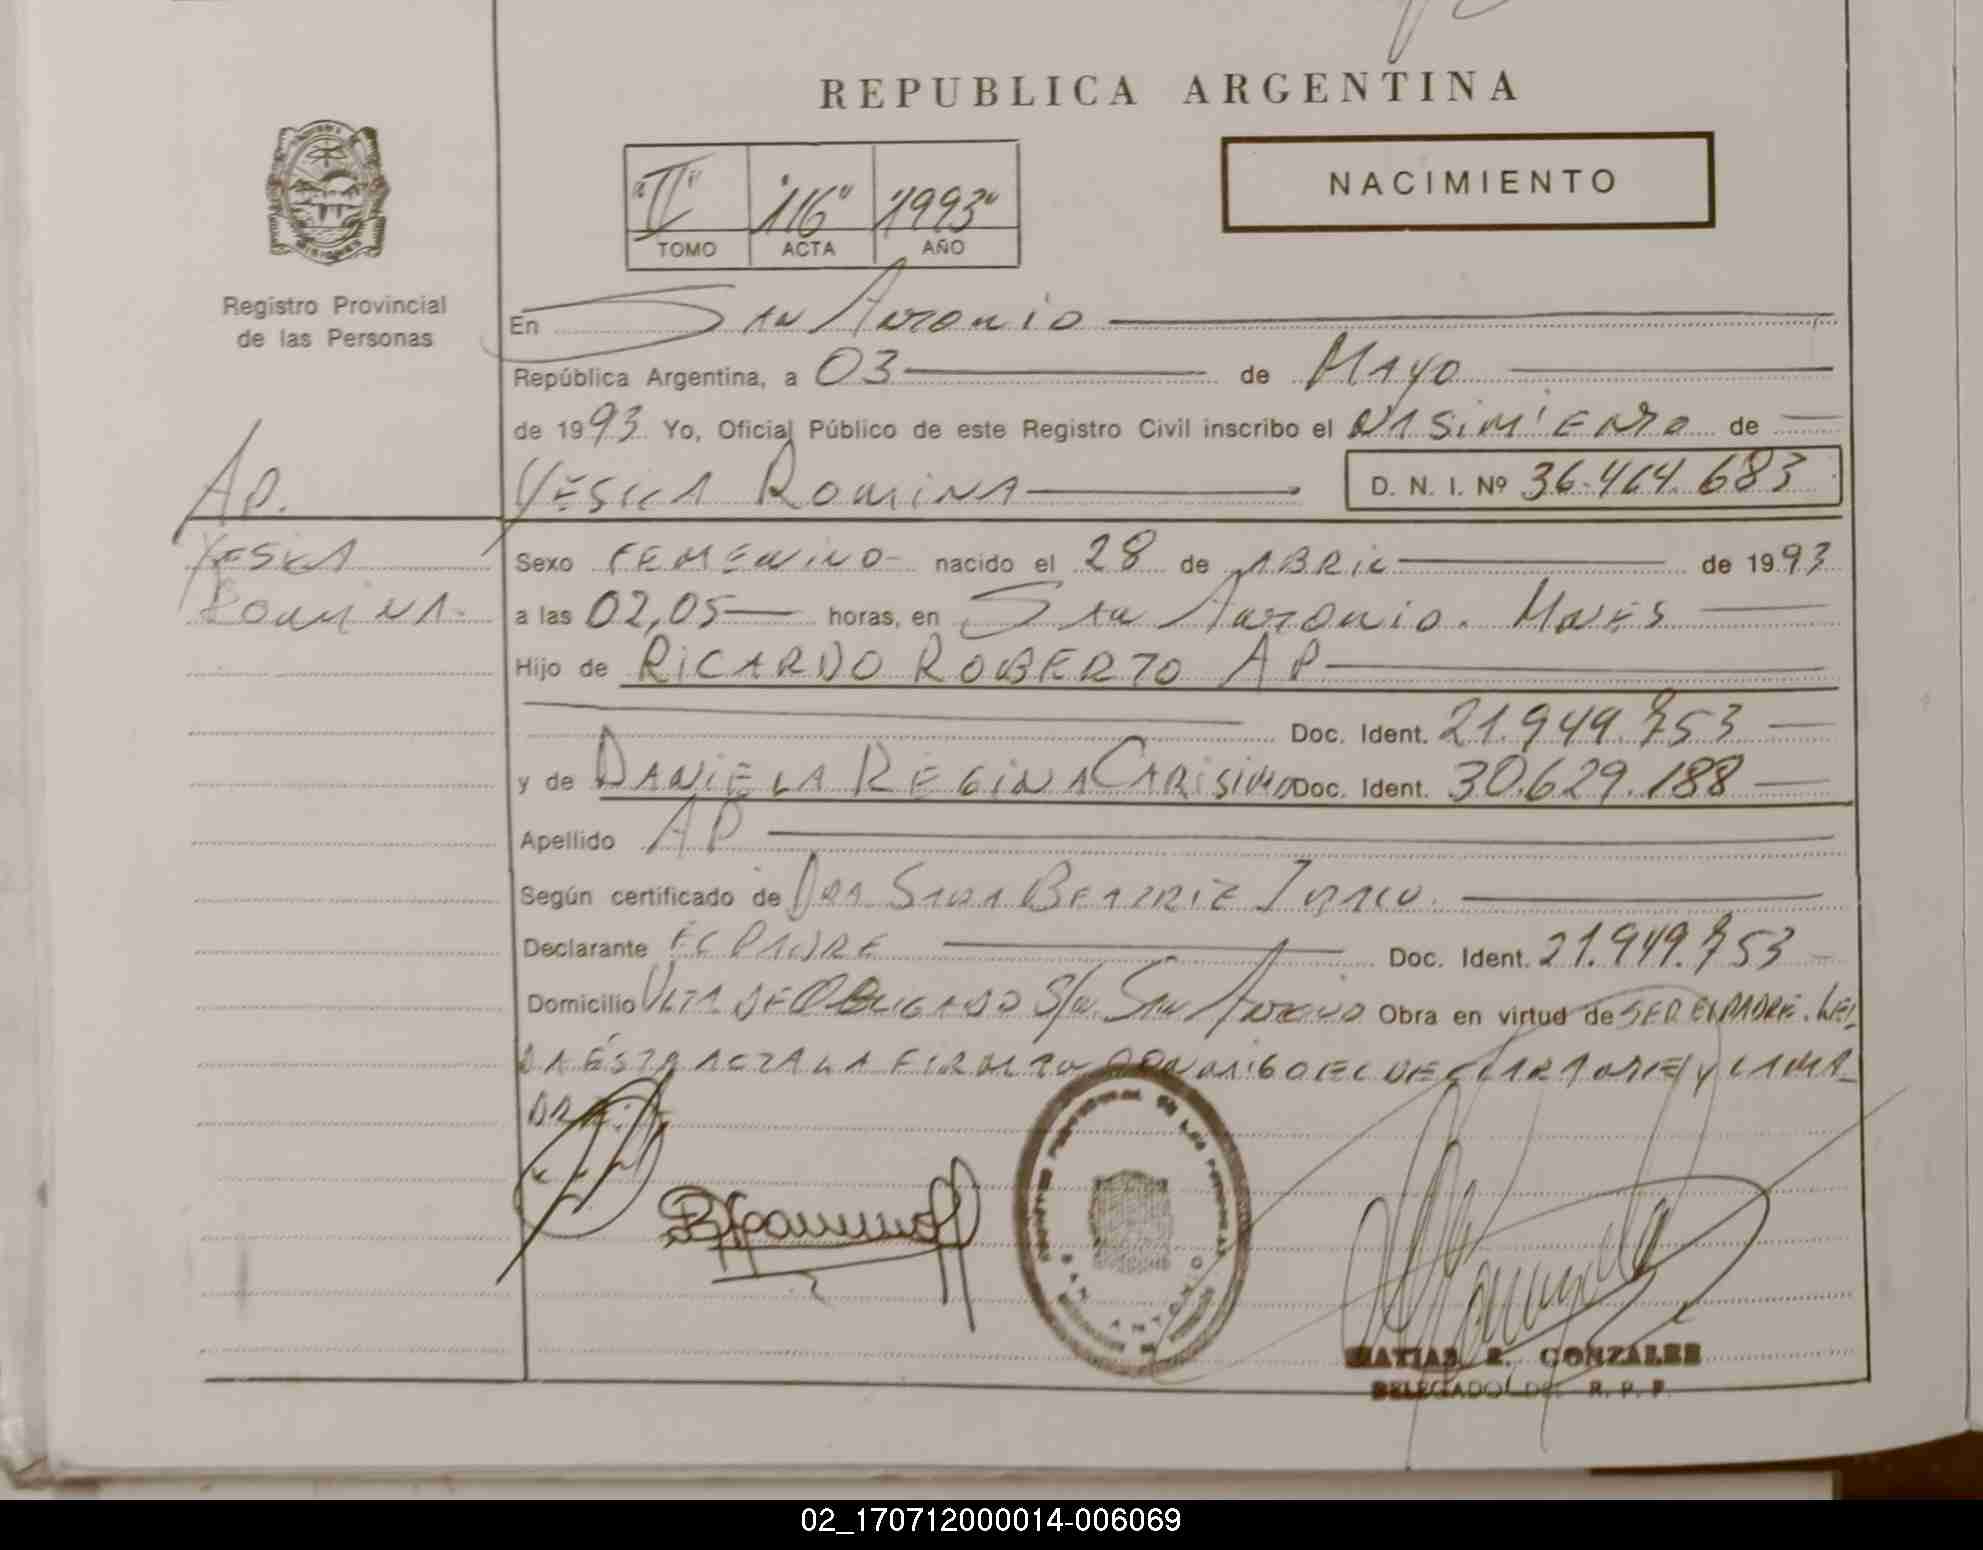 REPUBLICA ARGENTINA
NACIMIENTO
"II" "116" "1993"
TOMO ACTA AÑO
Registro Provincial
de las Personas
En San Antonio
República Argentina, a 03 de Mayo
de 1993 Yo, Oficial Público de este Registro Civil inscribo el NASiMiENTO de
YESICA ROMINA D. N. I. Nº 36.464.683
AP.
YESICA
ROMINA.
Sexo FEMENINO nacido el 28 de ABRIL de 1993
a las 02,05 horas, en San Antonio. Mnes
Hijo de RICARDO ROBERTO AP
Doc. Ident. 21.949.753
y de DANIELA REGINA CARISIMO Doc. Ident. 30.629.188
Apellido AP
Según certificado de DRA. SARA BEATRIZ
Declarante EL PADRE Doc. Ident. 21.949.753
Domicilio VLTA DE OBLIGADO S/N. San Antonio Obra en virtud de SER EL PADRE. LEI
DA ÉSTA ACTA LA FIRMAN CONMIGO EL DECLARANTE Y LA MA_
DRE.
REGISTRO PROVINCIAL DE LAS PERSONAS
SAN ANTONIO
MATIAS R. GONZALES
DELEGADO DE R. P. P.
02_170712000014-006069